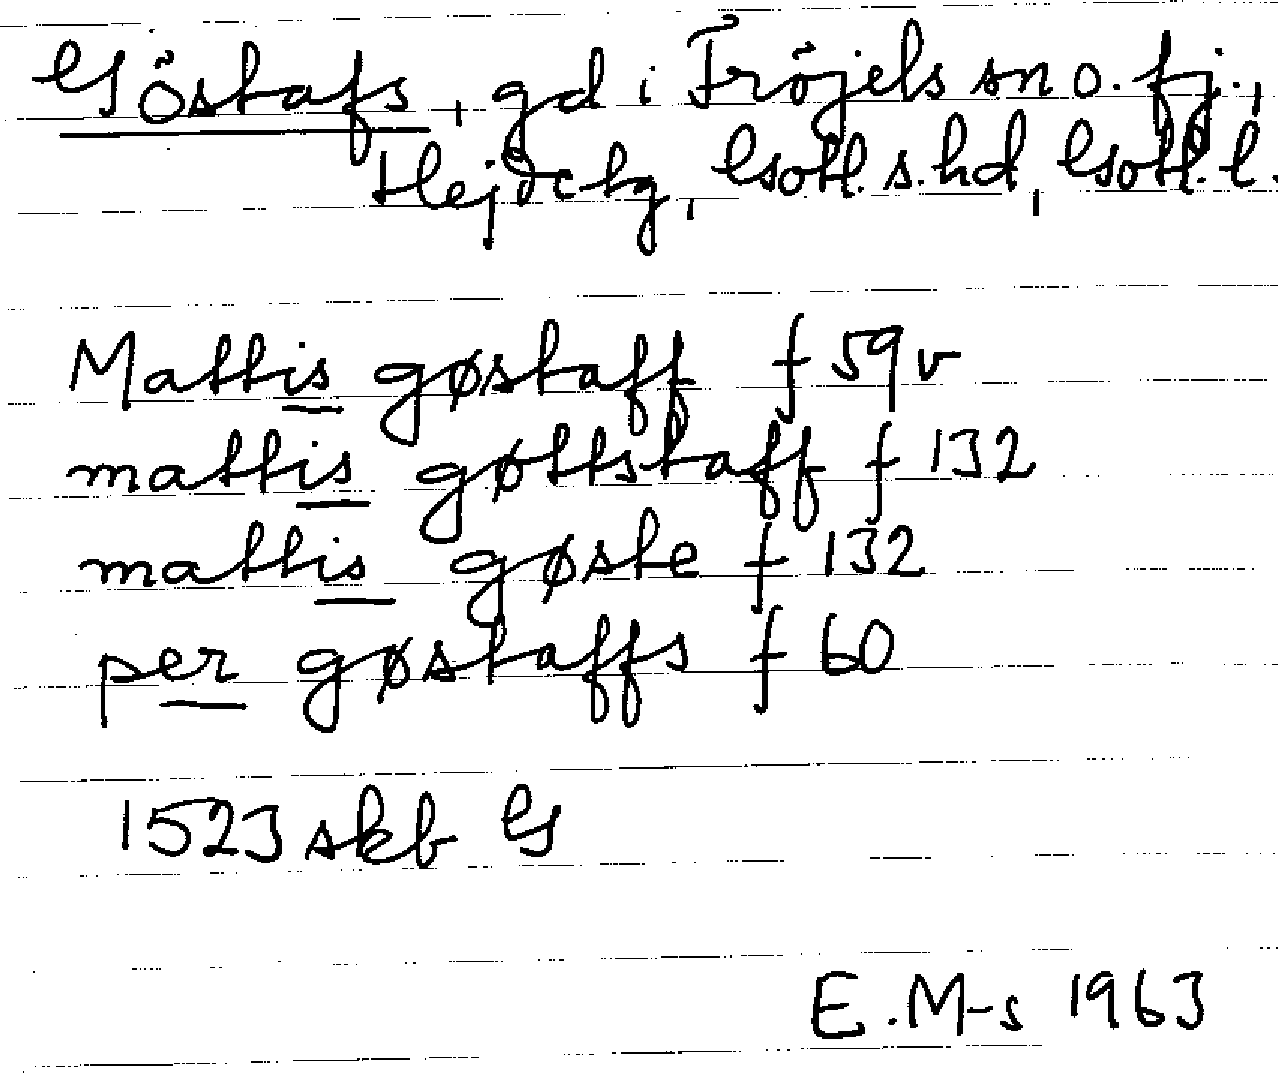 Göstafs, gd i Fröjels sn o. fj.,
Hejde tg, Gotl. s. hd, Gotl. l.
Mattis gøstaff f 59 v
mattis gøttstaff f 132
mattis gøste f 132
per gøstaffs f 60
1523 skb G
E. M-s 1963